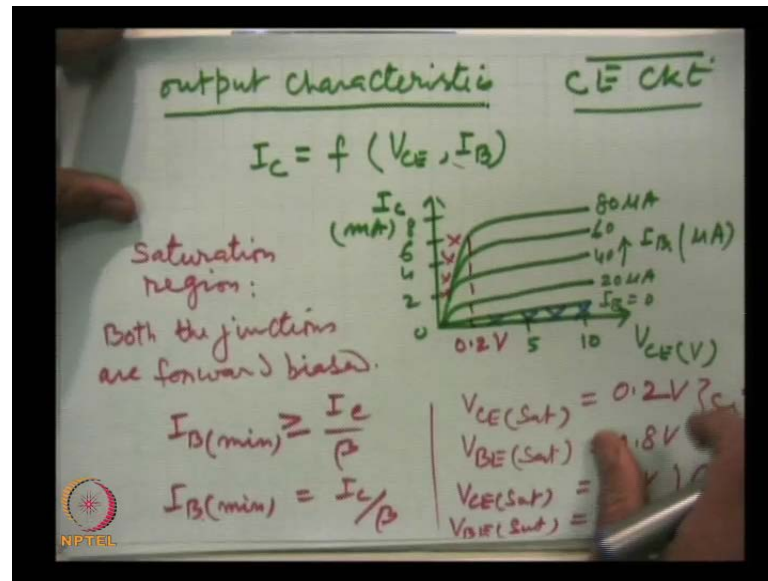 output characteristic CE Ckt
I_C = f (V_CE, I_B)
I_C
(mA)
8
6
4
2
0
0.2V 5 10 V_CE(V)
80 μA
60
40 ↑ I_B (μA)
20 μA
I_B = 0
Saturation
region:
Both the junctions
are forward biased.
I_B(min) ≥ I_C/β
I_B(min) = I_C/β
V_CE(Sat) = 0.2V
V_BE(Sat) .8V
V_CE(Sat) = V
V_BE(Sat) =
NPTEL